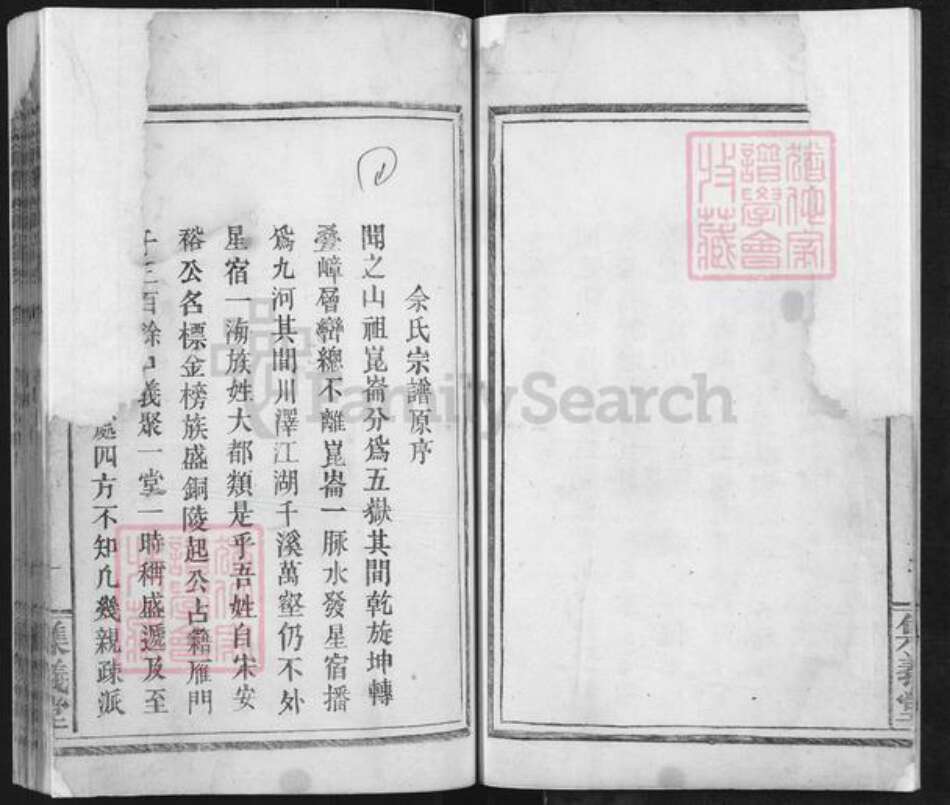 余氏宗譜原序
聞之山祖崑崙分爲五嶽其間乾旋坤轉
疊嶂層巒總不離崑崙一脈水發星宿播
爲九河其間川澤江湖千溪萬壑仍不外
星宿一派族姓大都類是乎吾姓自宋安
裕公名標金榜族盛銅陵起公占籍雁門
百餘口義聚一堂一時稱盛遞及至
處四方不知凡幾親疎派
集義堂
集義堂
譜學會
收藏
FamilySearch